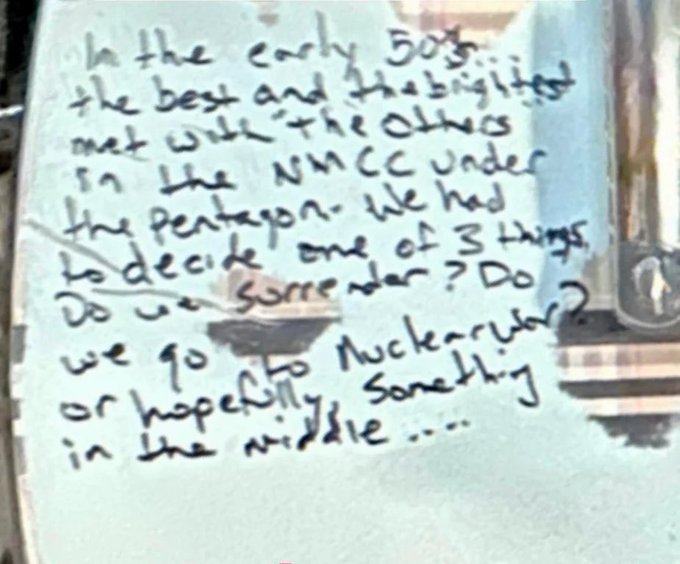 In the early 50's...
the best and the brightest
met with "the others"
in the NMCC under
the pentagon. We had
to decide one of 3 things.
Do we surrender? Do
we go to Nuclear war?
or hopefully, Something
in the middle ....